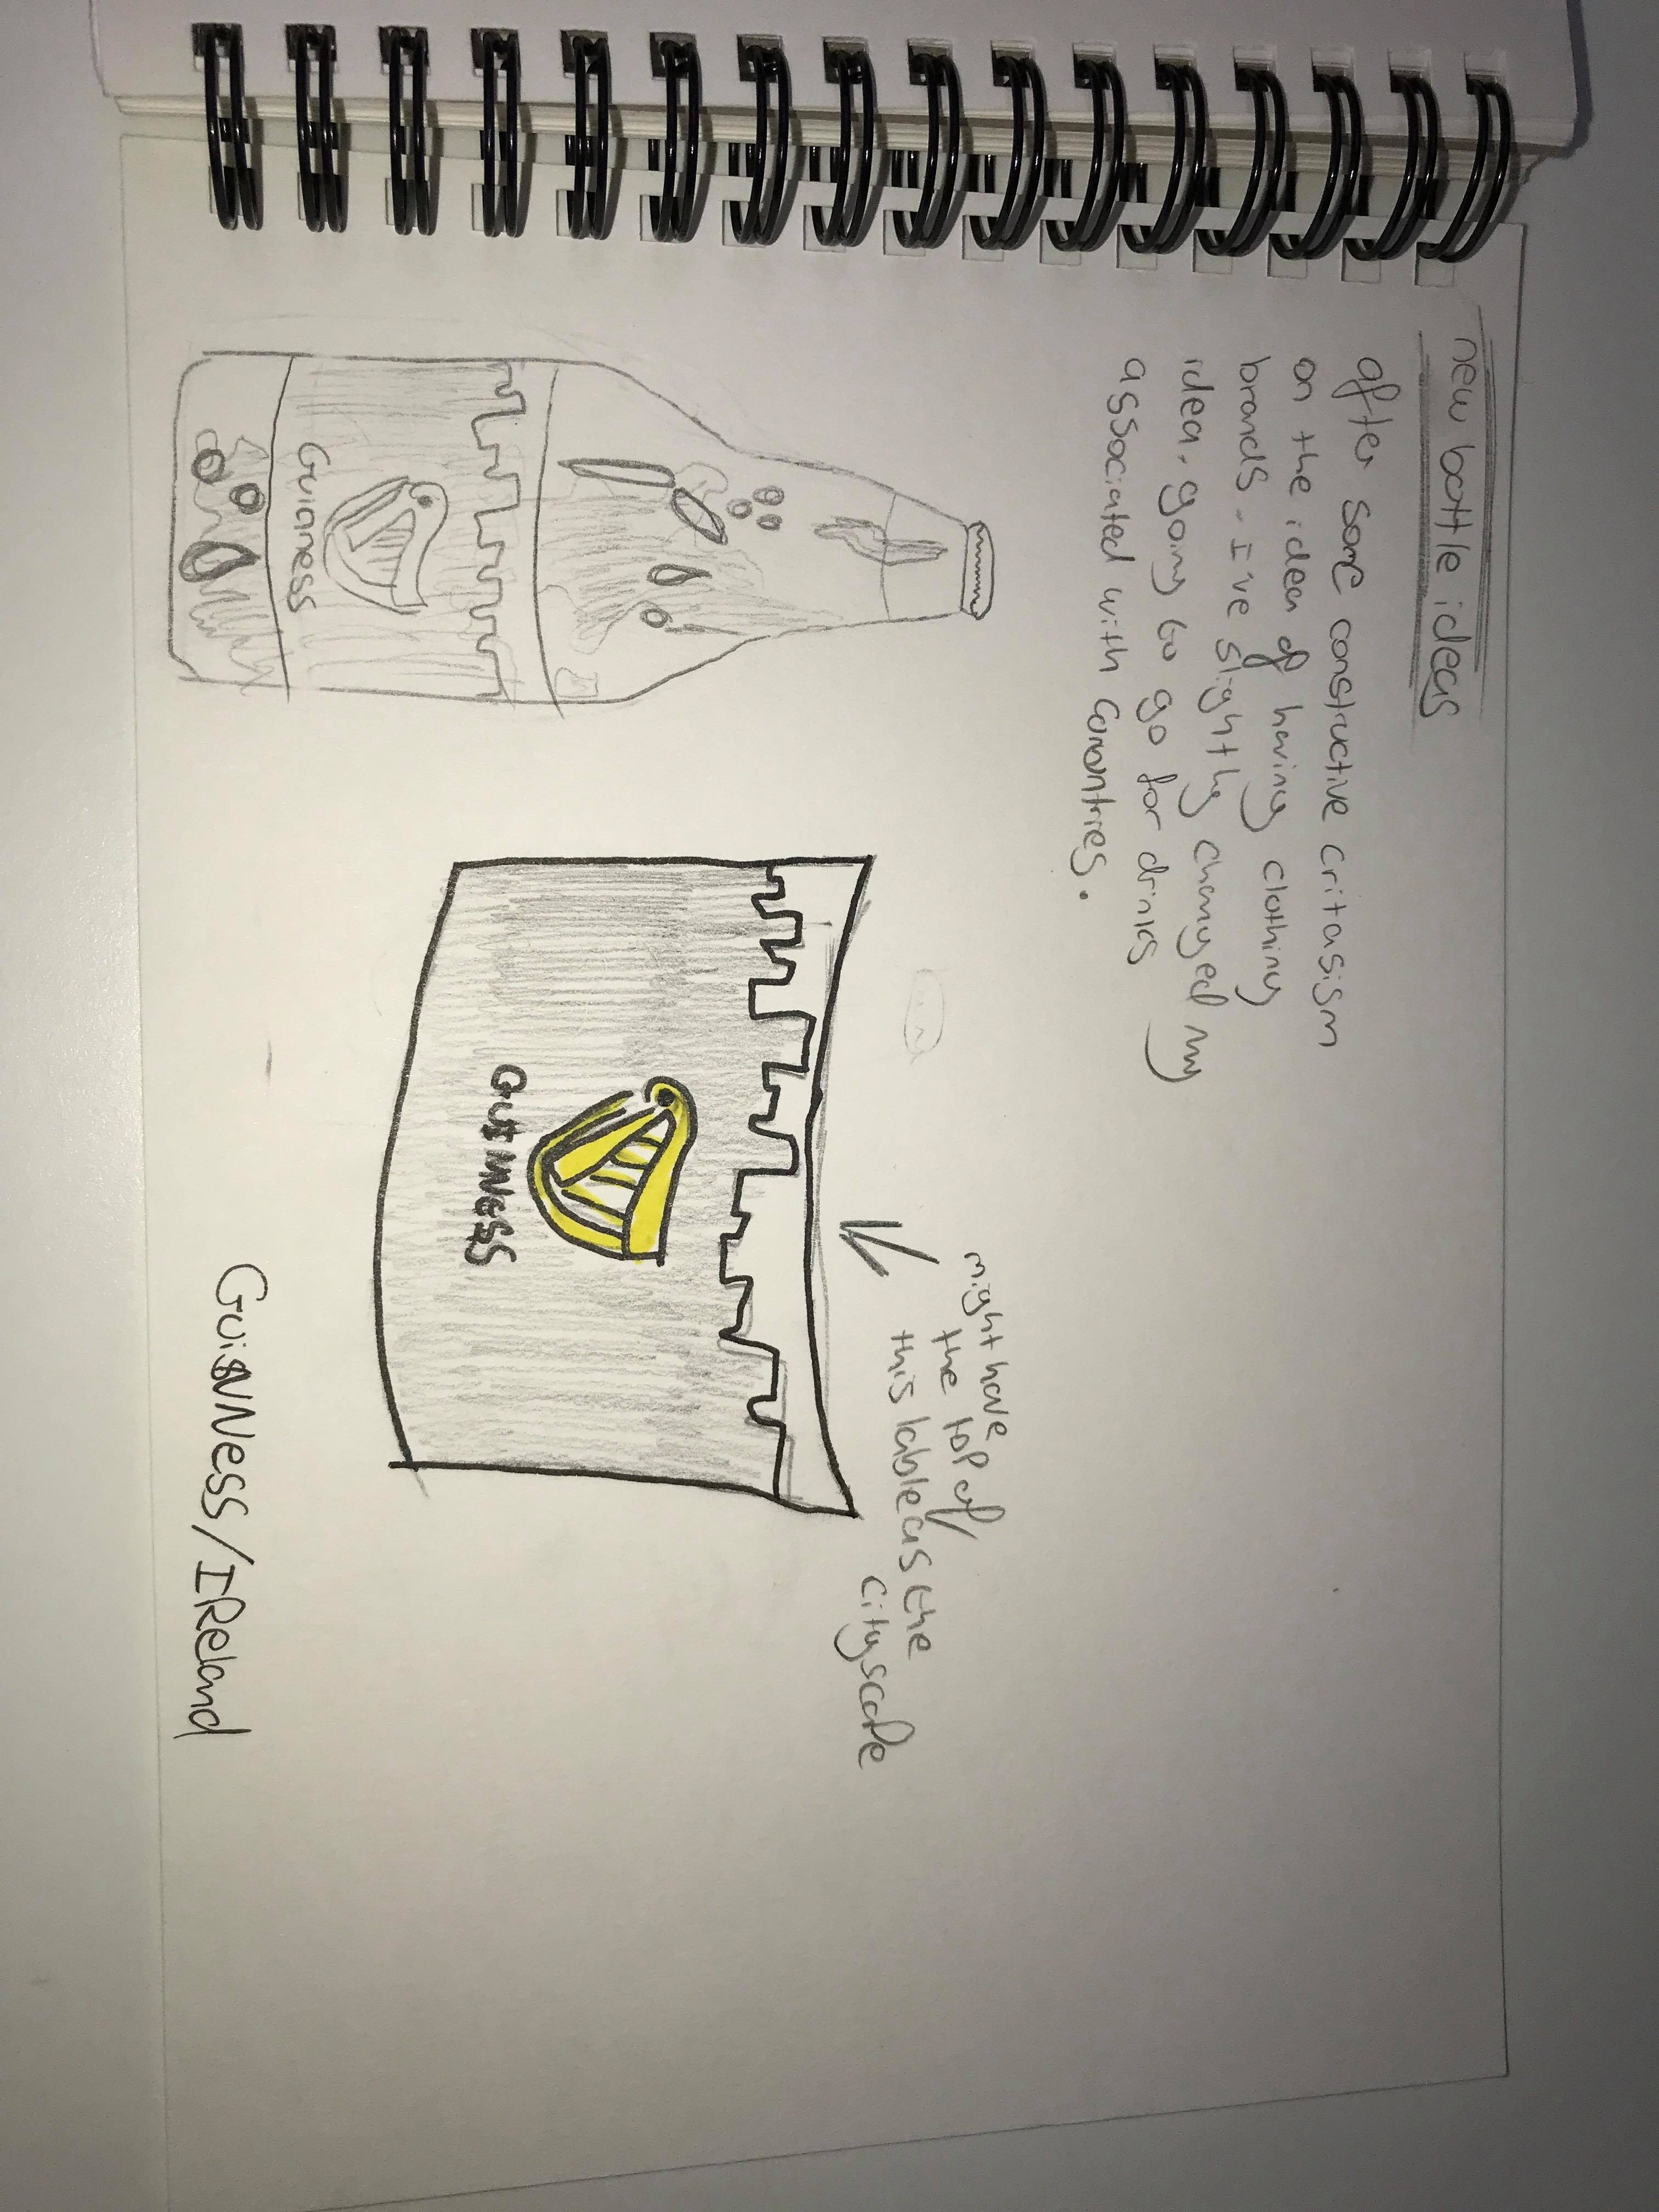 new bottle ideas
after some constructive critasism
on the idea of having clothing
brands. I've slighthy changed my
idea, going to go for drinks
associated with Coountries.
Guinness
might have
the top of
this lable as the
cityscape
GUINNESS
GuiNNess/IReland